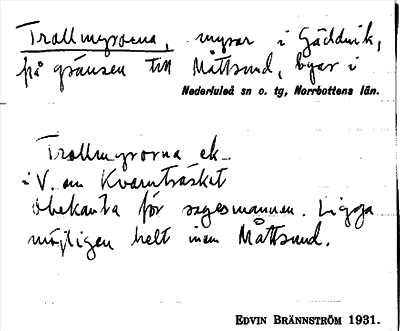 Trollmyrorna, myrar i Gäddvik,
på gränsen till Måttsund, byar i
Nederluleå sn o. tg, Norrbottens län.
Trollmyrorna ek.
i V. om Kvarnträsket
Obekanta för sagesmannen. Ligga
möjligen helt inom Måttsund.
EDVIN BRÄNNSTRÖM 1931.